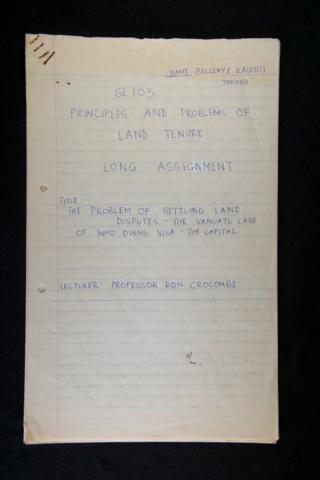 NAME BELLEAYE KALOATI
SE 103
PRINCIPLES AND PROBLEMS OF
LAND TENURE
LONG ASSIGNMENT
TITLE
THE PROBLEM OF SETTLING LAND
DISPUTES - THE VANUATU CASE
OF WHO OWNS VILA - THE CAPITAL
LECTURER: PROFESSOR RON CROCOMBE